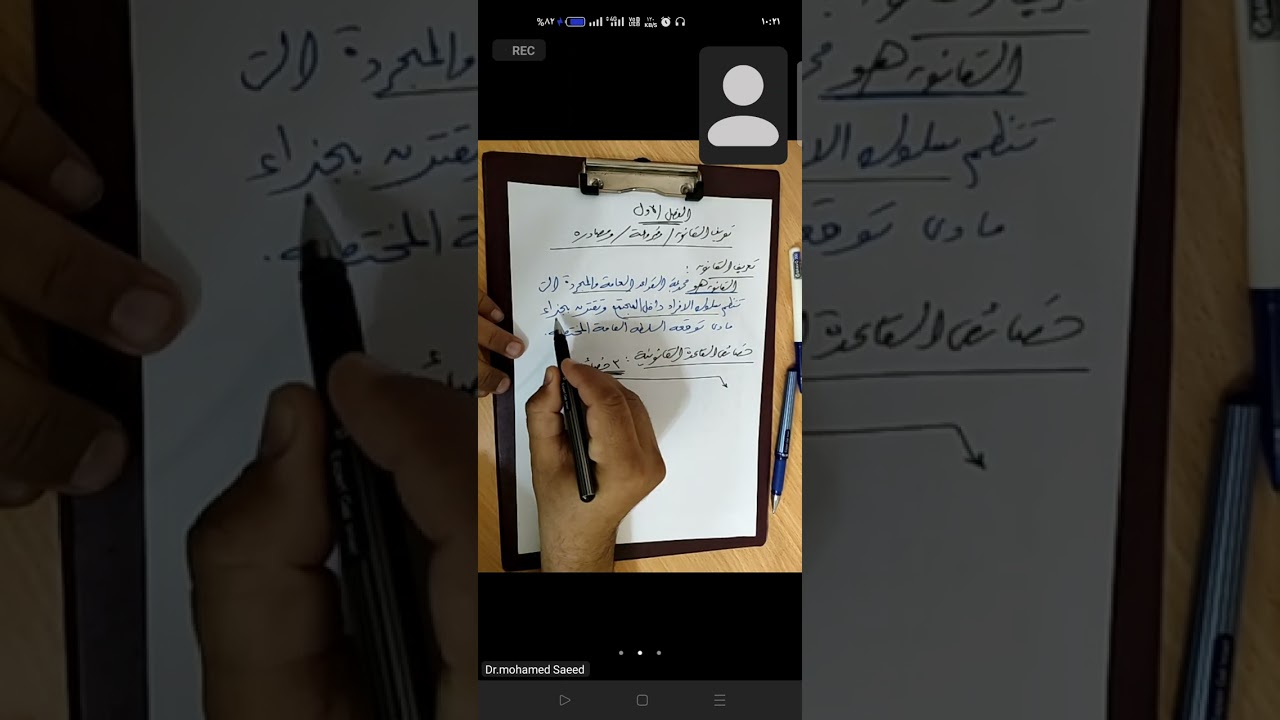 %٨٢ 4G Vo LTE ١٢٠ KB/S ١٠:٢١
REC
الفصل الأول
تعريف القانون / فروعه / ومصادره
تعريف القانون :
القانون هو مجموعة القواعد العامة والمجردة الت
تنظم سلوك الافراد داخل المجتمع وتقترن بجزاء
مادى توقعه السلطة العامة المختصة.
خصائص القاعدة القانونية : ٣
Dr.mohamed Saeed